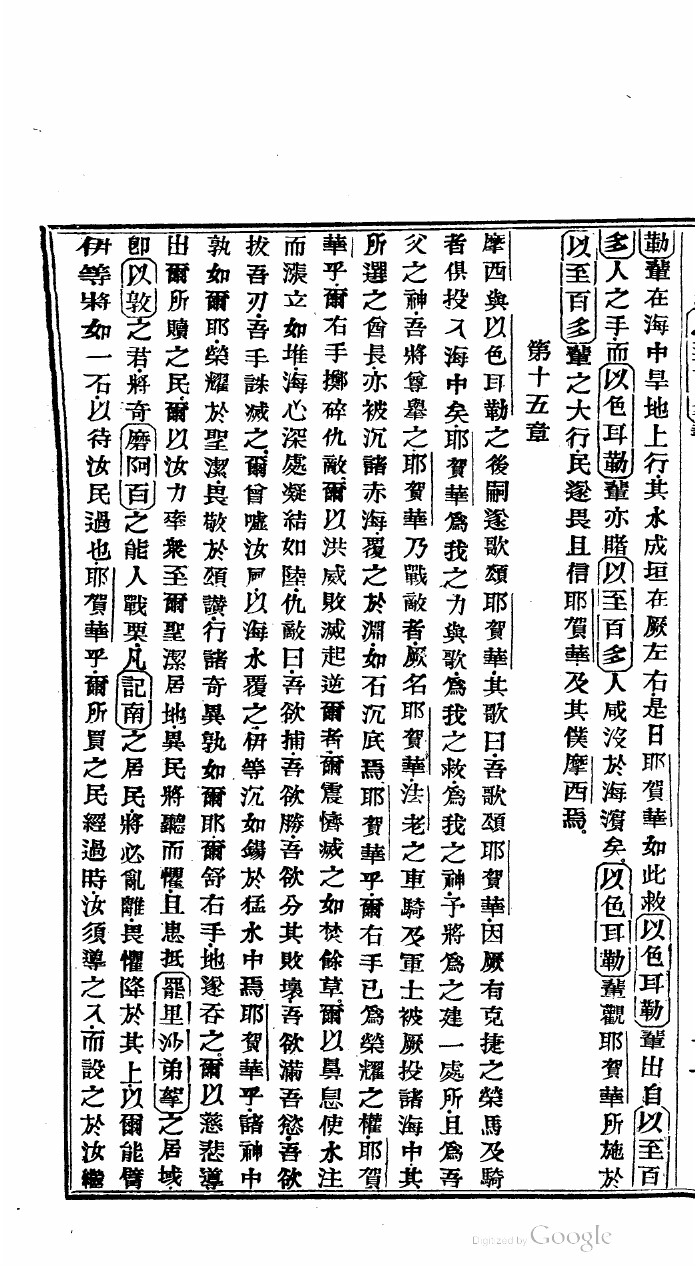 勒輩在海中旱地上行其水成垣在厥左右是日耶賀華如此救以色耳勒輩出自以至百
多人之手而以色耳勒輩亦賭以至百多人咸沒於海濱矣以色耳勒輩觀耶賀華所施於
以至百多輩之大行民遂畏且信耶賀華及其僕摩西焉
第十五章
摩西與以色耳勒之後嗣遂歌頌耶賀華其歌曰吾歌頌耶賀華因厥有克捷之榮馬及騎
者俱投入海中矣耶賀華為我之力與歌為我之救為我之神予將為之建一處所且為吾
父之神吾將尊舉之耶賀華乃戰敵者厥名耶賀華法老之車騎及軍士被厥投諸海中其
所選之酋長亦被沉諸赤海覆之於淵如石沉底焉耶賀華乎爾右手已為榮耀之權耶賀
華乎爾右手擲碎仇敵爾以洪威敗滅起逆爾者爾震憤滅之如焚餘草爾以鼻息使水注
而漲立如堆海心深處凝結如陸仇敵曰吾欲捕吾欲勝吾欲分其敗壞吾欲滿吾慾吾欲
拔吾刃吾手誅滅之爾曾噓汝風以海水覆之伊等沉如錫於猛水中焉耶賀華乎諸神中
孰如爾耶榮耀於聖潔畏敬於頌讚行諸奇異孰如爾耶爾舒右手地遂吞之爾以慈悲導
出爾所贖之民爾以汝力率衆至爾聖潔居地異民將聽而懼且患抵罷里沙弟拏之居域
即以敦之君將奇磨阿百之能人戰栗凡記南之居民將必亂離畏懼降於其上以爾能臂
伊等將如一石以待汝民過也耶賀華乎爾所買之民經過時汝須導之入而設之於汝繼
Digitized by Google